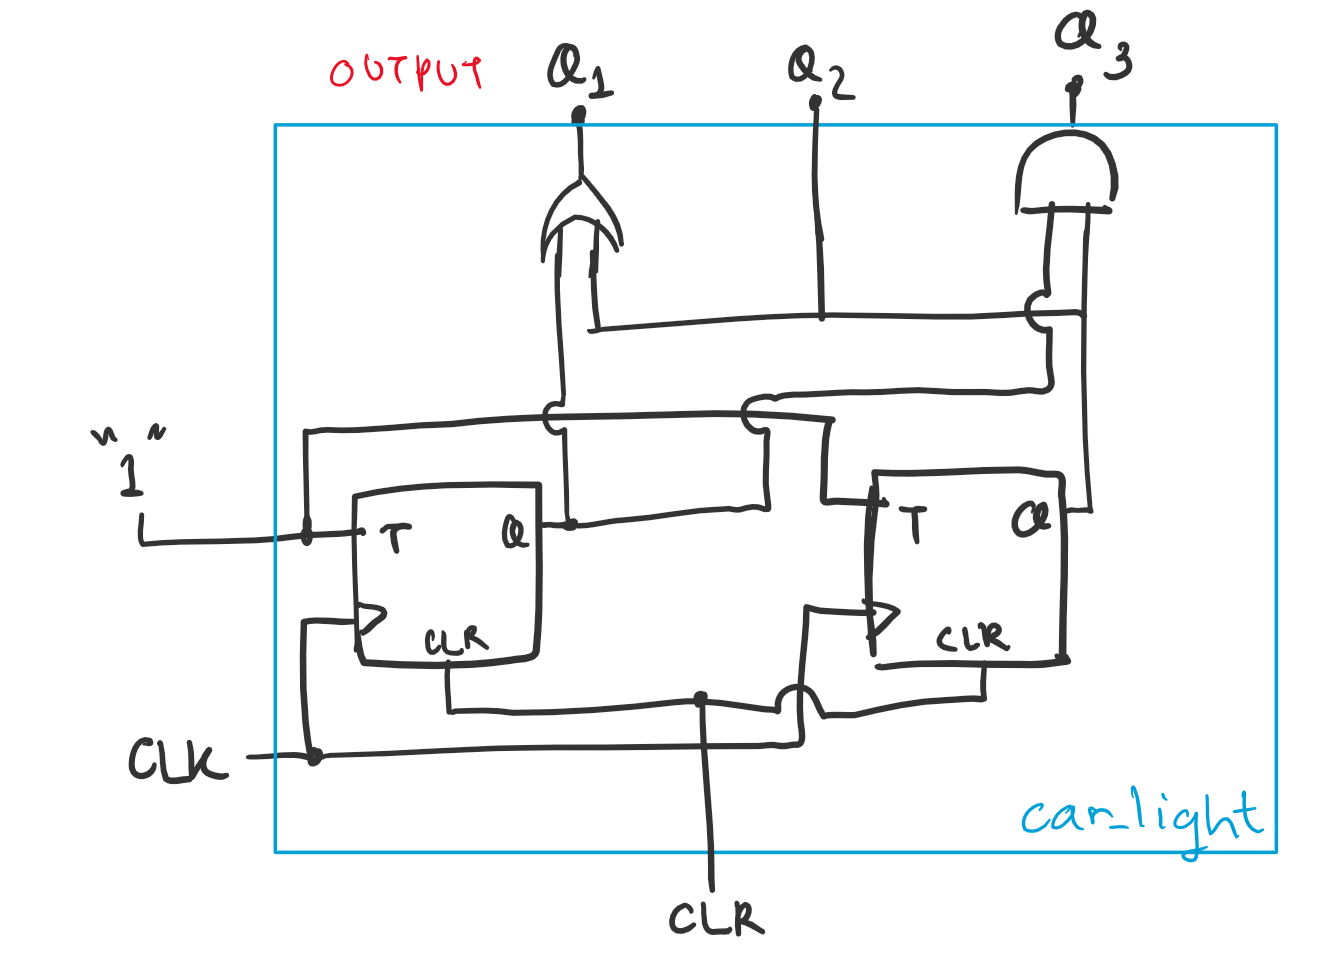 OUTPUT
Q1
Q2
Q3
"1"
T
Q
CLR
T
Q
CLR
CLK
CLR
car_light